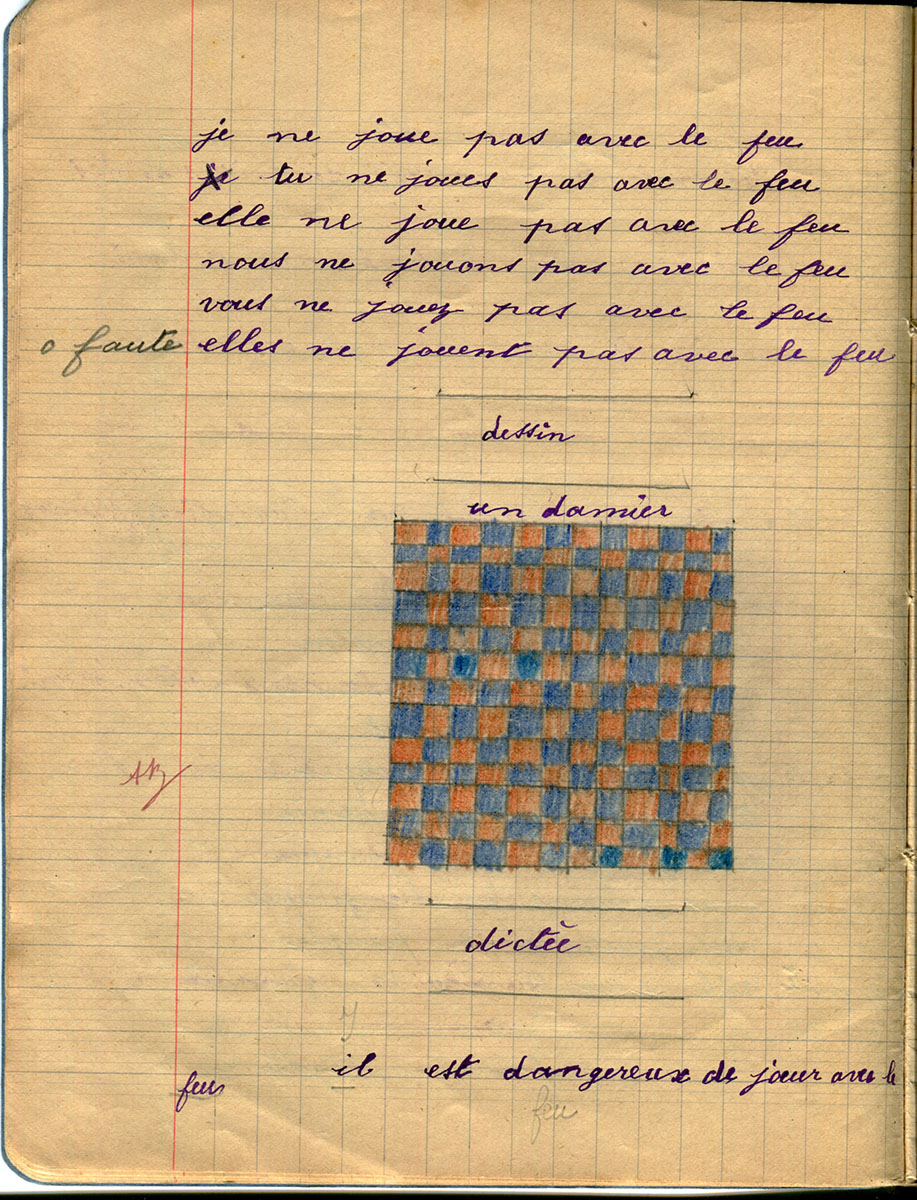 je ne joue pas avec le feu
je tu ne joues pas avec le feu
elle ne joue pas avec le feu
nous ne jouons pas avec le feu
vous ne jouez pas avec le feu
0 faute elles ne jouent pas avec le feu
dessin
un damier
dictée
il est dangereux de jouer avec le
feu
feu